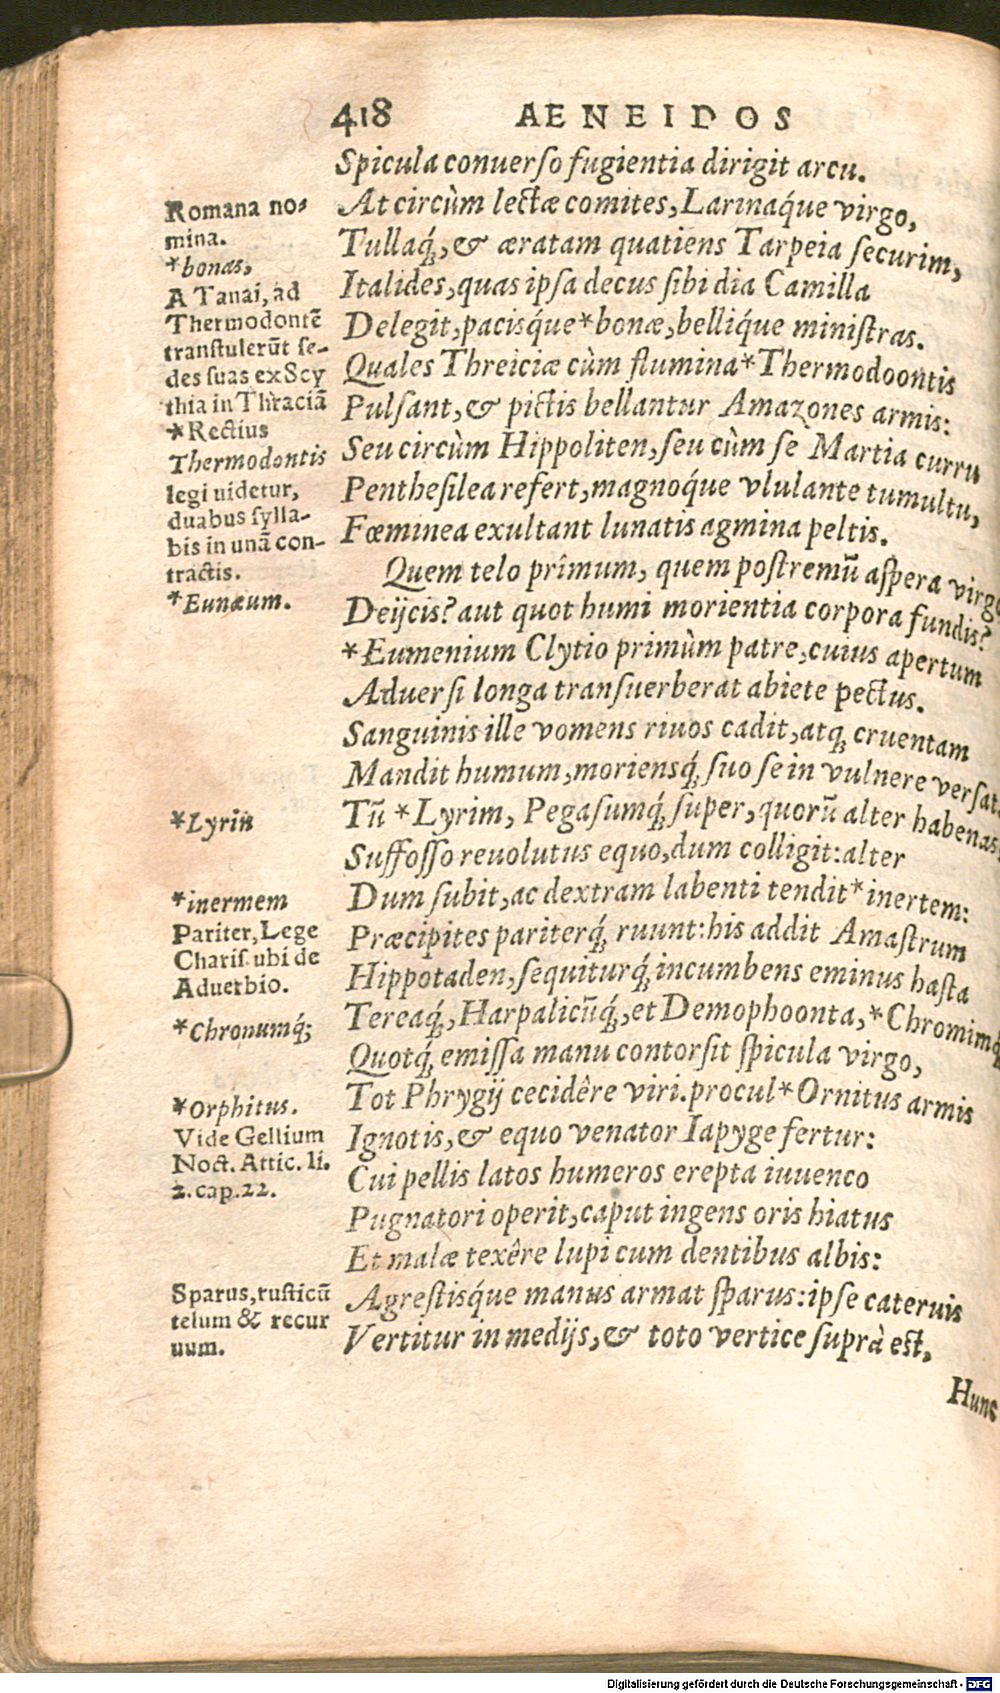 418 AENEIDOS
Spicula conuerso fugientia dirigit arcu.
At circùm lectæ comites, Larinaq́ue virgo,
Tullaq́;, & æratam quatiens Tarpeia securim,
Italides, quas ipsa decus sibi dia Camilla
Delegit, pacisq́ue *bonæ, belliq́ue ministras.
Quales Threiciæ cùm flumina *Thermodoontis
Pulsant, & pictis bellantur Amazones armis:
Seu circùm Hippoliten, seu cùm se Martia curru
Penthesilea refert, magnoq́ue vlulante tumultu,
Fœminea exultant lunatis agmina peltis.
Quem telo prîmum, quem postremū aspera virgo
Deijcis? aut quot humi morientia corpora fundis?
*Eumenium Clytio primùm patre, cuius apertum
Aduersi longa transuerberat abiete pectus.
Sanguinis ille vomens riuos cadit, atq; cruentam
Mandit humum, moriensq́; suo se in vulnere versat.
Tū *Lyrim, Pegasumq́; super, quorū alter habenas
Suffosso reuolutus equo, dum colligit: alter
Dum subit, ac dextram labenti tendit *inertem:
Præcipites pariterq́; ruunt: his addit Amastrum
Hippotaden, sequiturq́; incumbens eminus hasta
Tereaq́;, Harpalicūq́;, et Demophoonta, *Chromimq́;
Quotq́; emissa manu contorsit spicula virgo,
Tot Phrygij cecidêre viri. procul *Ornitus armis
Ignotis, & equo venator Iapyge fertur:
Cui pellis latos humeros erepta iuuenco
Pugnatori operit, caput ingens oris hiatus
Et malæ texêre lupi cum dentibus albis:
Agrestisq́ue manus armat sparus: ipse cateruis
Vertitur in medijs, & toto vertice suprà est,
Hunc
Romana no-
mina.
*bonas,
A Tanai, ad
Thermodontē
transtulerūt se-
des suas ex Scy
thia in Thraciā
*Rectius
Thermodontis
legi uidetur,
duabus sylla-
bis in unā con-
tractis.
*Eunæum.
*Lyrin
*inermem
Pariter, Lege
Charis. ubi de
Aduerbio.
*Chronumq́;
*Orphitus.
Vide Gellium
Noct. Attic. li.
2. cap. 22.
Sparus, rusticū
telum & recur
uum.
Digitalisierung gefördert durch die Deutsche Forschungsgemeinschaft - DFG